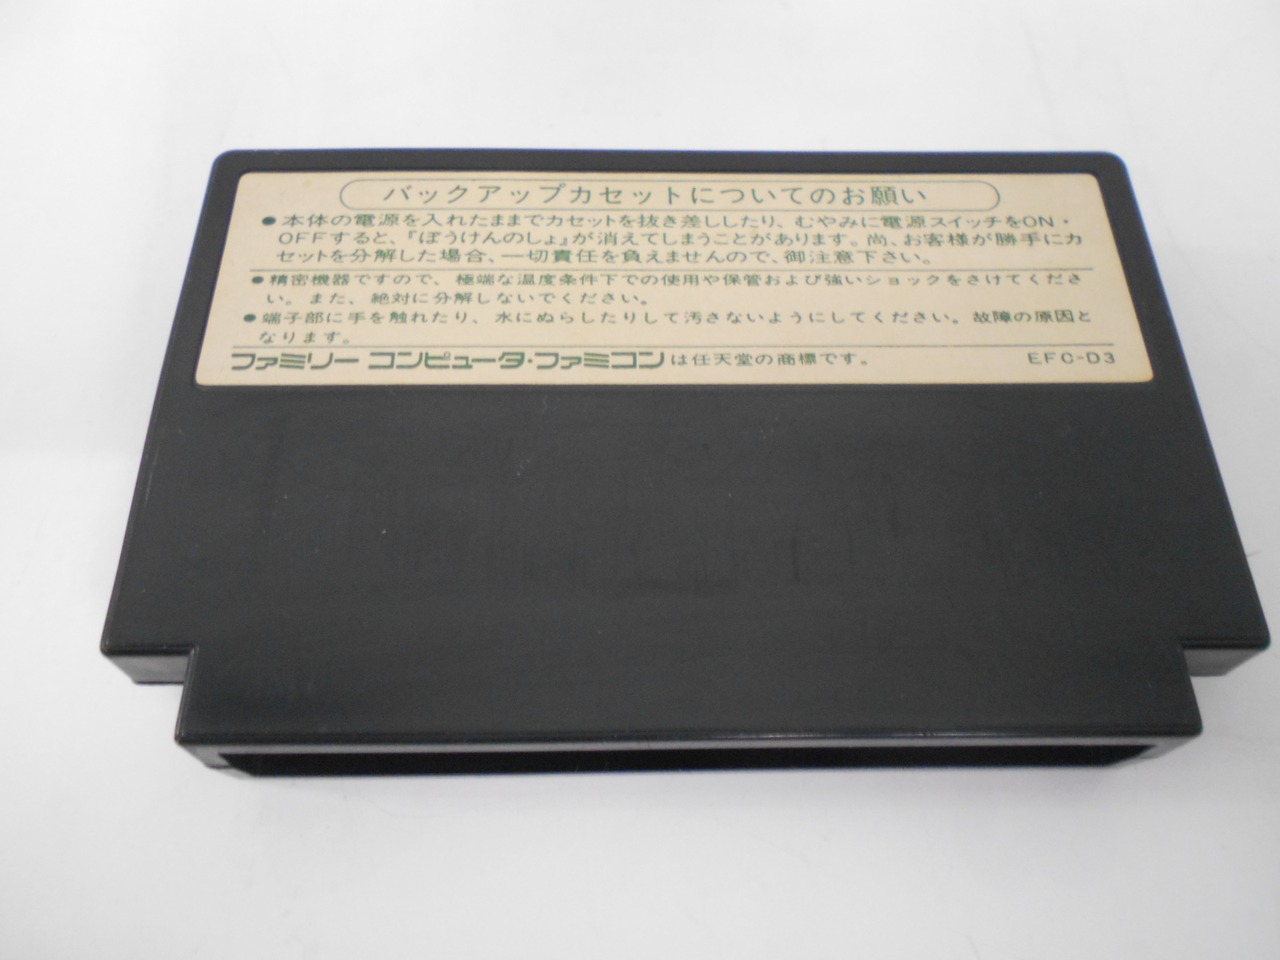 バックアップカセットについてのお願い
●本体の電源を入れたままでカセットを抜き差ししたり、むやみに電源スイッチをON・
OFFすると、『ぼうけんのしょ』が消えてしまうことがあります。尚、お客様が勝手にカ
セットを分解した場合、一切責任を負えませんので、御注意下さい。
●精密機器ですので、極端な温度条件下での使用や保管および強いショックをさけてくださ
い。また、絶対に分解しないでください。
●端子部に手を触れたり、水にぬらしたりして汚さないようにしてください。故障の原因と
なります。
ファミリーコンピュータ・ファミコンは任天堂の商標です。 EFC-D3